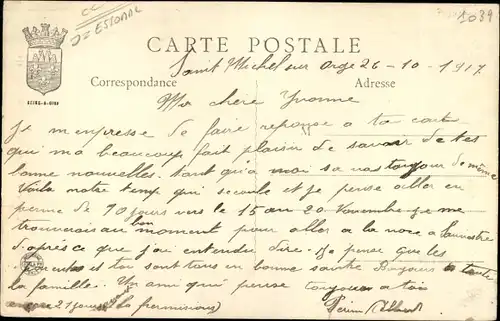 CC
J = ESSONAL
1039
CARTE POSTALE
Correspondance
Adresse
SEINE-&-OISE
Saint Michel sur Orge 26 - 10 - 1917
Ma chère Yvonne
Je m'empresse de faire reponse a ta carte
qui ma beaucoup fait plaisir de savoir de tes
bonne nouvelles. tant qu'a moi sa va toujour de même
Voila notre temp qui secoule et je pense aller en
perme de 10 jours vers le 15 au 20 Novembre je me
trouverais au bon moment pour aller a la noce a
d'apres ce que j'ai entendu dire. Je pense que les
et toi sont en bonne santé Bonjour a toute
la famille. Un ami qui pense toujours a toi
encore 21 jours la permission